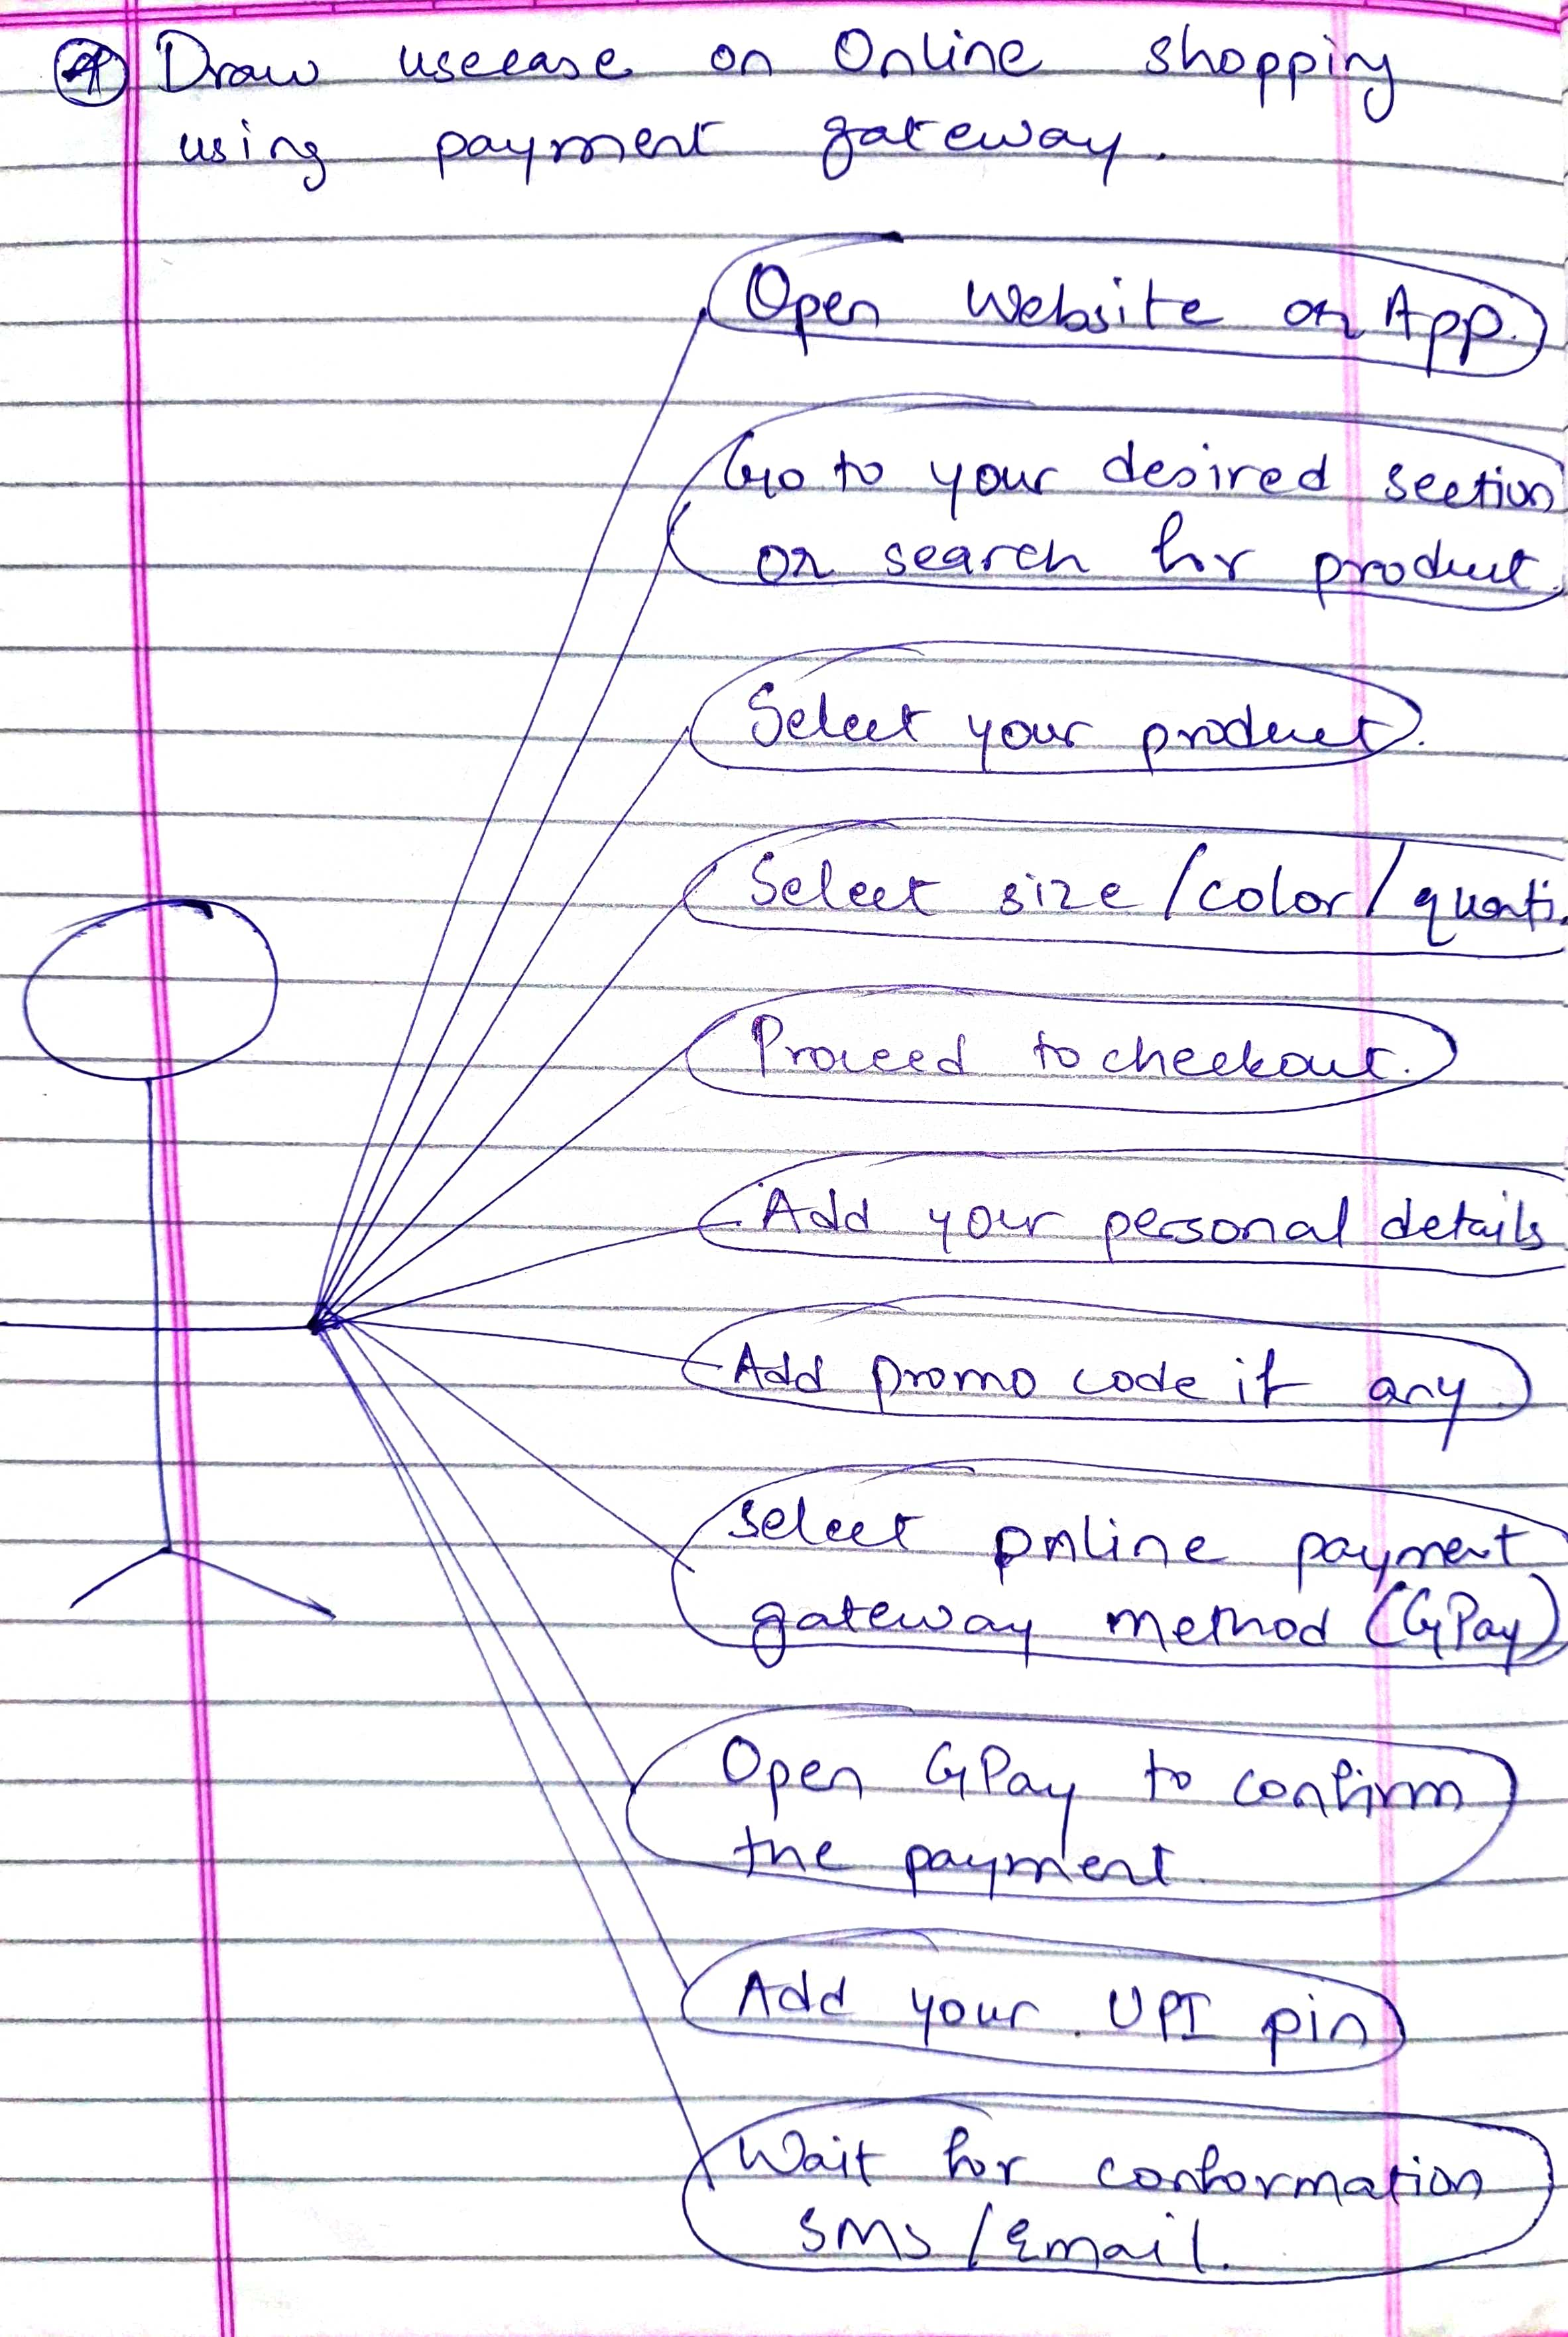 Draw usecase on Online shopping
using payment gateway.
Open Website or App.
Go to your desired section
or search for product.
Select your product.
Select size/color/quanti
Proceed to checkout.
Add your personal details
Add promo code if any
Select online payment
gateway method (GPay)
Open GPay to confirm
the payment.
Add your UPI pin
Wait for conformation
SMS/Email.